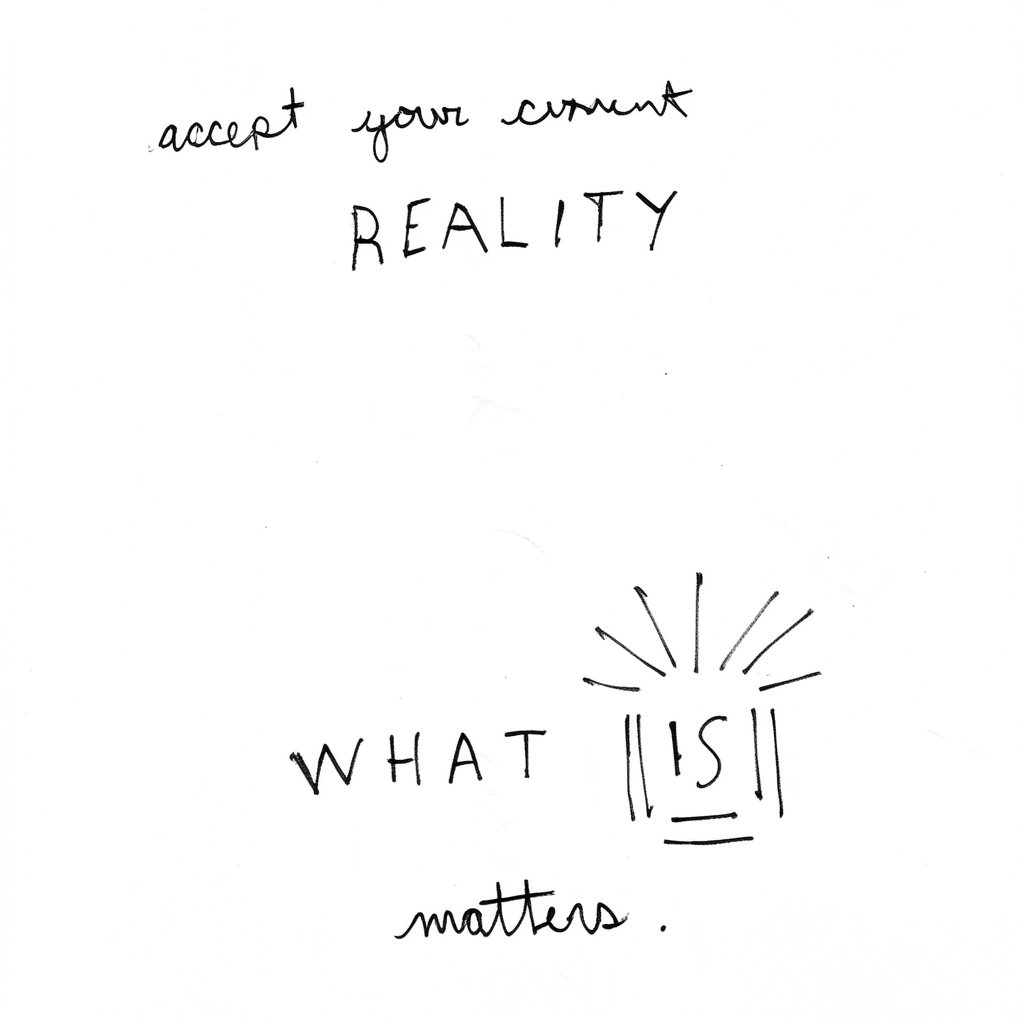 accept your current
REALITY
WHAT IS
matters.